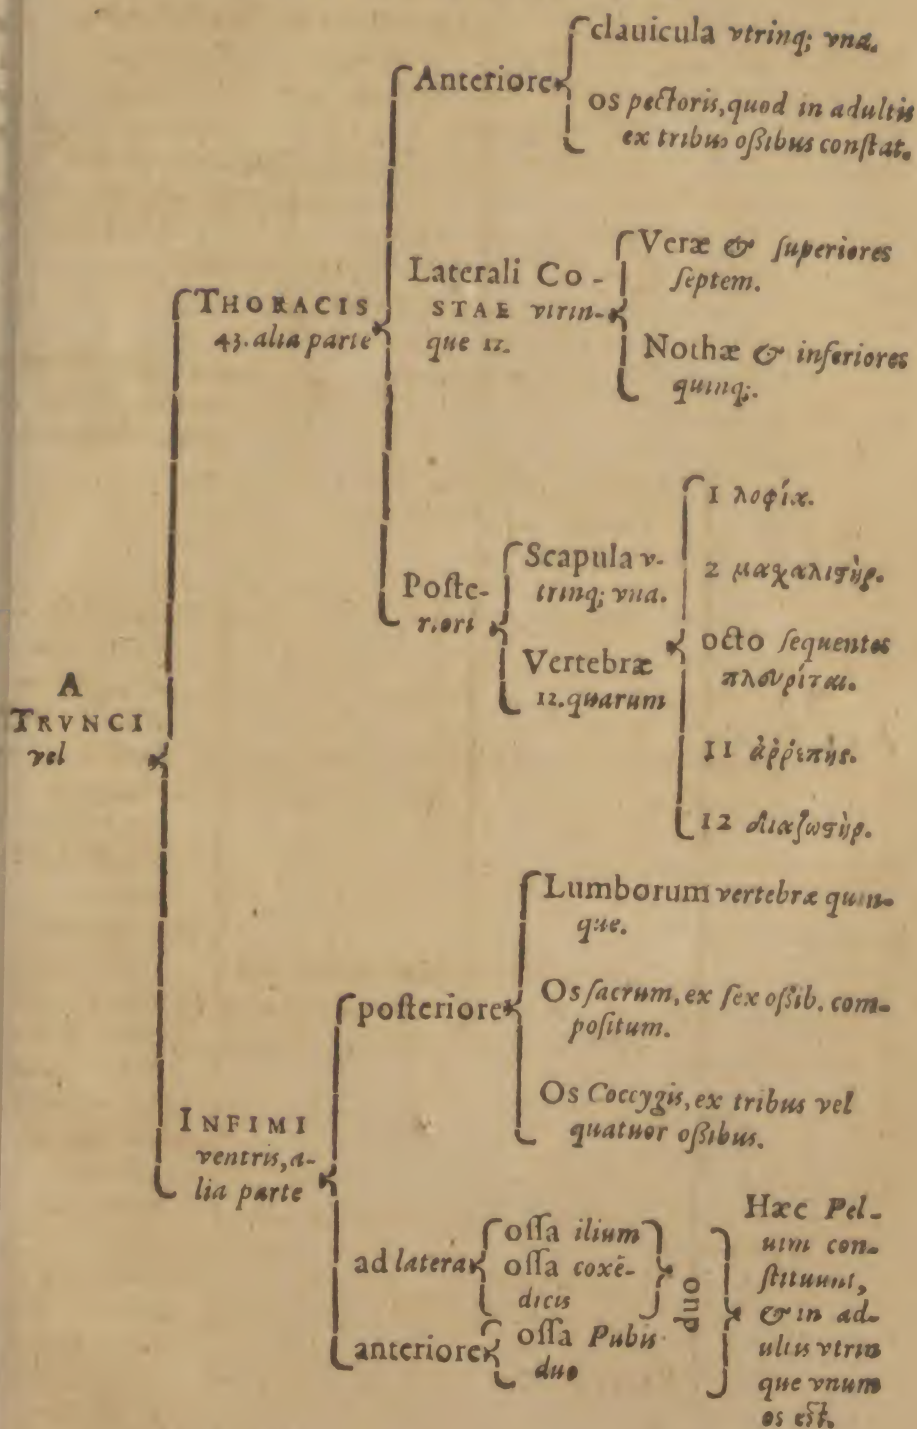 clauicula vtrinq; vna.
Anteriore
os pectoris, quod in adultis
ex tribus oſsibus conſtat.
THORACIS
43. alia parte
Laterali Co-
STAE vtrin-
que 12.
Veræ & ſuperiores
ſeptem.
Nothæ & inferiores
quinq;.
Poſte-
riori
Scapula v-
trinq; vna.
Vertebræ
12. quarum
1 λοφία.
2 μαχαλιϛὴρ.
octo ſequentes
πλευρίται.
11 ἀῤῥεπὴς.
12 διαζωϛὴρ.
A
TRVNCI
vel
INFIMI
ventris, a-
lia parte
poſteriore
Lumborum vertebræ quin-
que.
Os ſacrum, ex ſex oſsib. com-
poſitum.
Os Coccygis, ex tribus vel
quatuor oſsibus.
ad latera
oſſa ilium
oſſa coxē-
dicis
duo
anteriore
oſſa Pubis
duo
Hæc Pel-
uim con-
ſtituunt,
& in ad-
ultis vtrin
que vnum
os eſt.